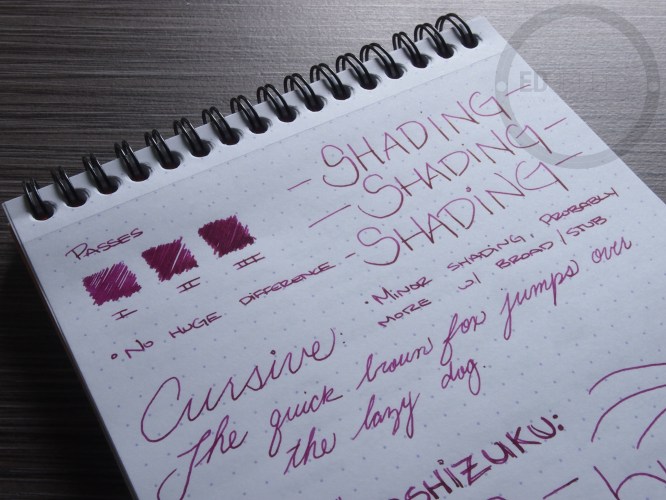 - SHADING -
- SHADING -
- SHADING -
PASSES
I II III
• NO HUGE DIFFERENCE
• MINOR SHADING. PROBABLY
MORE W/ BROAD/STUB
Cursive:
The quick brown fox jumps over
the lazy dog
SHIZUKU:
ED